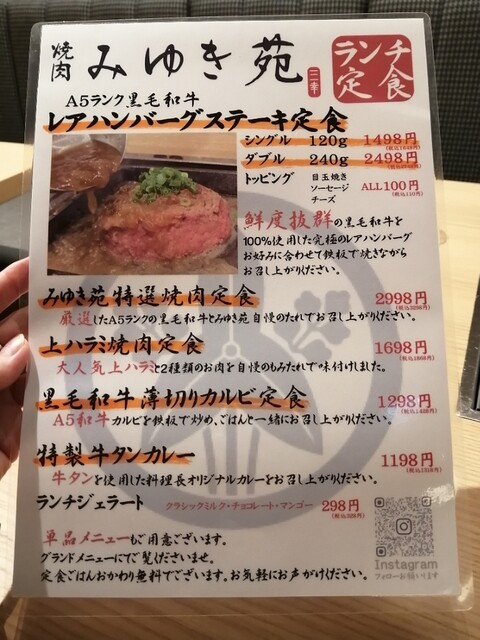 焼肉 みゆき苑
ランチ定食
A5ランク黒毛和牛
レアハンバーグステーキ定食
シングル 120g 1498円
ダブル 240g 2498円
トッピング 目玉焼き
ソーセージ
チーズ
ALL100円
(税込110円)
鮮度抜群の黒毛和牛を
100%使用した究極のレアハンバーグ
お好みに合わせて鉄板で焼きながら
お召し上がりください。
みゆき苑特選焼肉定食 2998円
厳選したA5ランクの黒毛和牛とみゆき苑自慢のたれでお召し上がりください。
上ハラミ焼肉定食 1698円
大人気上ハラミと2種類のお肉を自慢のもみたれで味付けました。
黒毛和牛薄切りカルビ定食 1298円
A5和牛カルビを鉄板で炒め、ごはんと一緒にお召し上がりください。
特製牛タンカレー 1198円
牛タンを使用した料理長オリジナルカレーをお召し上がりください。
ランチジェラート クラシックミルク・チョコレート・マンゴー 298円
単品メニューもご用意ございます。
グランドメニューにてご覧くださいませ。
定食ごはんおかわり無料でございます。お気軽にお声がけください。
Instagram
フォローお願いします